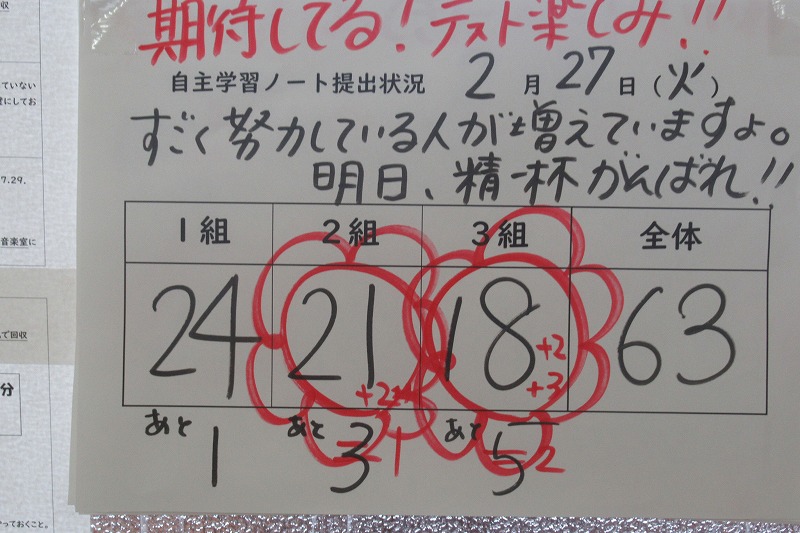 期待してる!テスト楽しみ!!
自主学習ノート提出状況 2月27日(火)
すごく努力している人が増えていますよ。
明日、精一杯がんばれ!!
1組 2組 3組 全体
24 21 18 63
+2
+2 +3
あと あと あと
1 3 1 5 2
収
ていない
堂にしてお
7.29.
音楽室に
で回収
分
っておくこと。